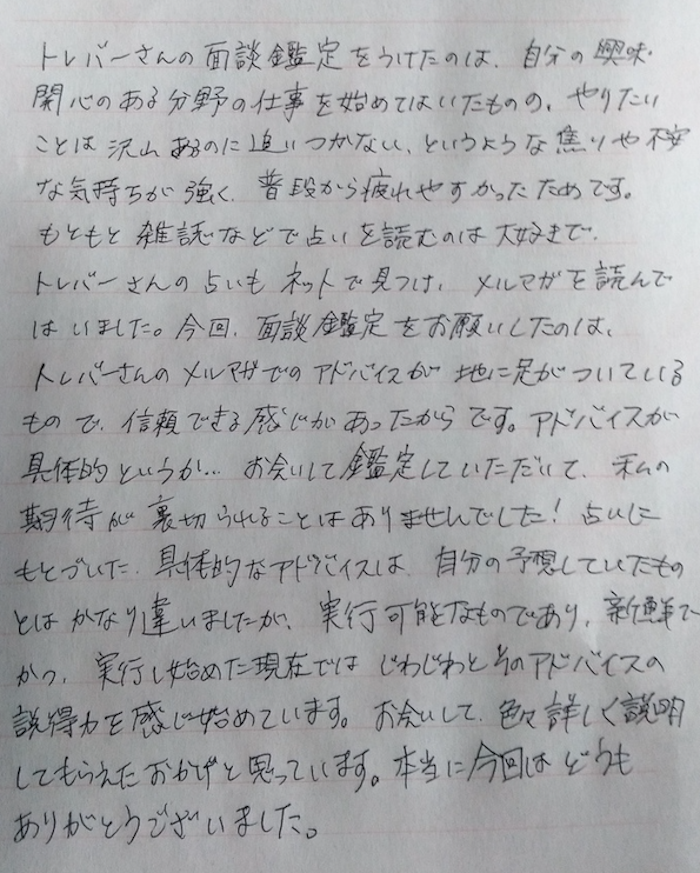 トレバーさんの面談鑑定をうけたのは、自分の興味・
関心のある分野の仕事を始めてはいたものの、やりたい
ことは沢山あるのに追いつかない、というような焦りや不安
な気持ちが強く、普段から疲れやすかったためです。
もともと雑誌などで占いを読むのは大好きで、
トレバーさんの占いもネットで見つけ、メルマガを読んで
はいました。今回、面談鑑定をお願いしたのは、
トレバーさんのメルマガでのアドバイスが地に足がついている
もので、信頼できる感じがあったからです。アドバイスが
具体的というか… お会いして鑑定していただいて、私の
期待が裏切られることはありませんでした！占いに
もとづいた、具体的なアドバイスは、自分の予想していたもの
とはかなり違いましたが、実行可能なものであり、新鮮で
かつ、実行し始めた現在ではじわじわとそのアドバイスの
説得力を感じ始めています。お会いして、色々詳しく説明
してもらえたおかげと思っています。本当に今回はどうも
ありがとうございました。